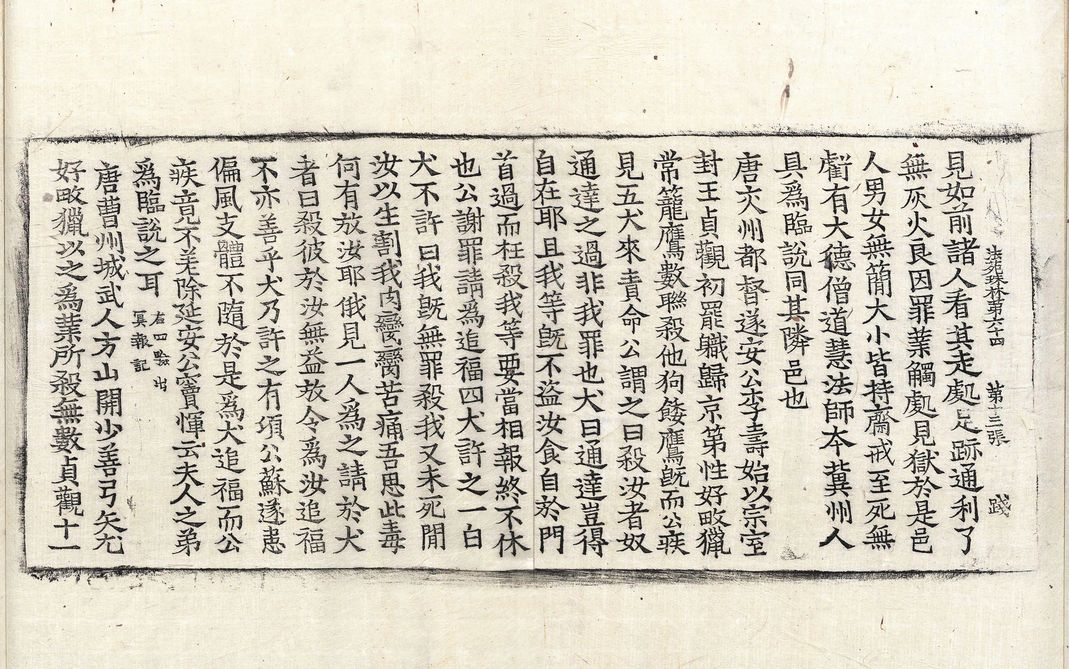 法苑珠林第六十四　第十三張　踐
見如前諸人看其走處足跡通利了
無灰火良因罪業觸處見獄於是邑
人男女無簡大小皆持齋戒至死無
虧有大德僧道慧法師本冀州人
具爲臨說同其隣邑也
唐交州都督遂安公李壽始以宗室
封王貞觀初罷軄歸京第性好畋獵
常籠鷹數聯殺他狗餧鷹旣而公疾
見五犬來責命公謂之曰殺汝者奴
通達之過非我罪也犬曰通達豈得
自在耶且我等旣不盜汝食自於門
首過而枉殺我等要當相報終不休
也公謝罪請爲追福四犬許之一白
犬不許曰我旣無罪殺我又未死閒
汝以生割我肉臠臠苦痛吾思此毒
何有放汝耶俄見一人爲之請於犬
者曰殺彼於汝無益放令爲汝追福
不亦善乎犬乃許之有頃公蘇遂患
偏風支體不隨於是爲犬追福而公
疾竟不差除延安公竇惲云夫人之弟
爲臨說之耳 右四驗出
冥報記
唐曹州城武人方山開少善弓矢尤
好畋獵以之爲業所殺無數貞觀十一